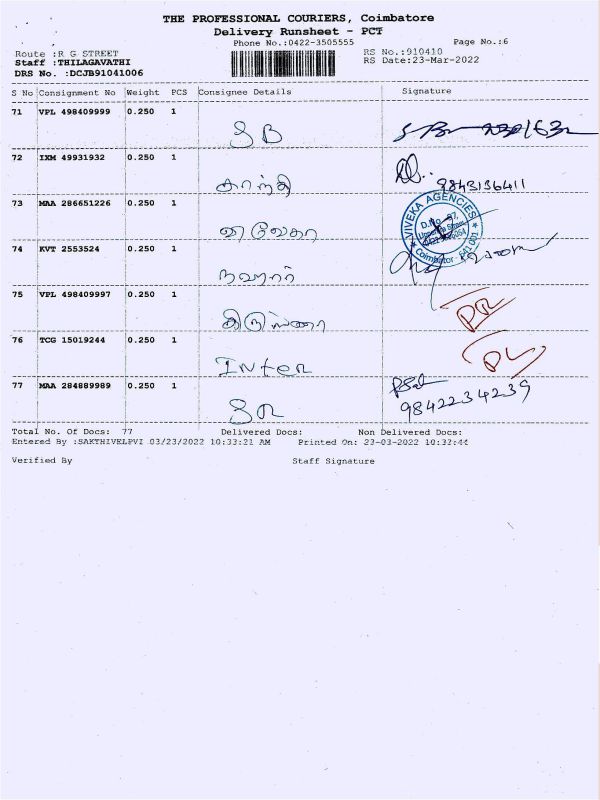 THE PROFESSIONAL COURIERS, Coimbatore
Delivery Runsheet - PCT
Phone No.:0422-3505555 Page No.:6
Route :R G STREET RS No.:910410
Staff :THILAGAVATHI RS Date:23-Mar-2022
DRS No. :DCJB91041006
S No Consignment No Weight PCS Consignee Details Signature
71 VPL 498409999 0.250 1
SB
72 IXM 49931932 0.250 1
காந்தி 9843136411
73 MAA 286651226 0.250 1
விவேகா
VIVEKA AGENCIES
Coimbatore - 641 001
74 KVT 2553524 0.250 1
75 VPL 498409997 0.250 1
76 TCG 15019244 0.250 1
Inter
77 MAA 284889989 0.250 1
SR 9842234239
Total No. Of Docs: 77 Delivered Docs: Non Delivered Docs:
Entered By :SAKTHIVELPVI 03/23/2022 10:33:21 AM Printed On: 23-03-2022 10:32:44
Verified By Staff Signature